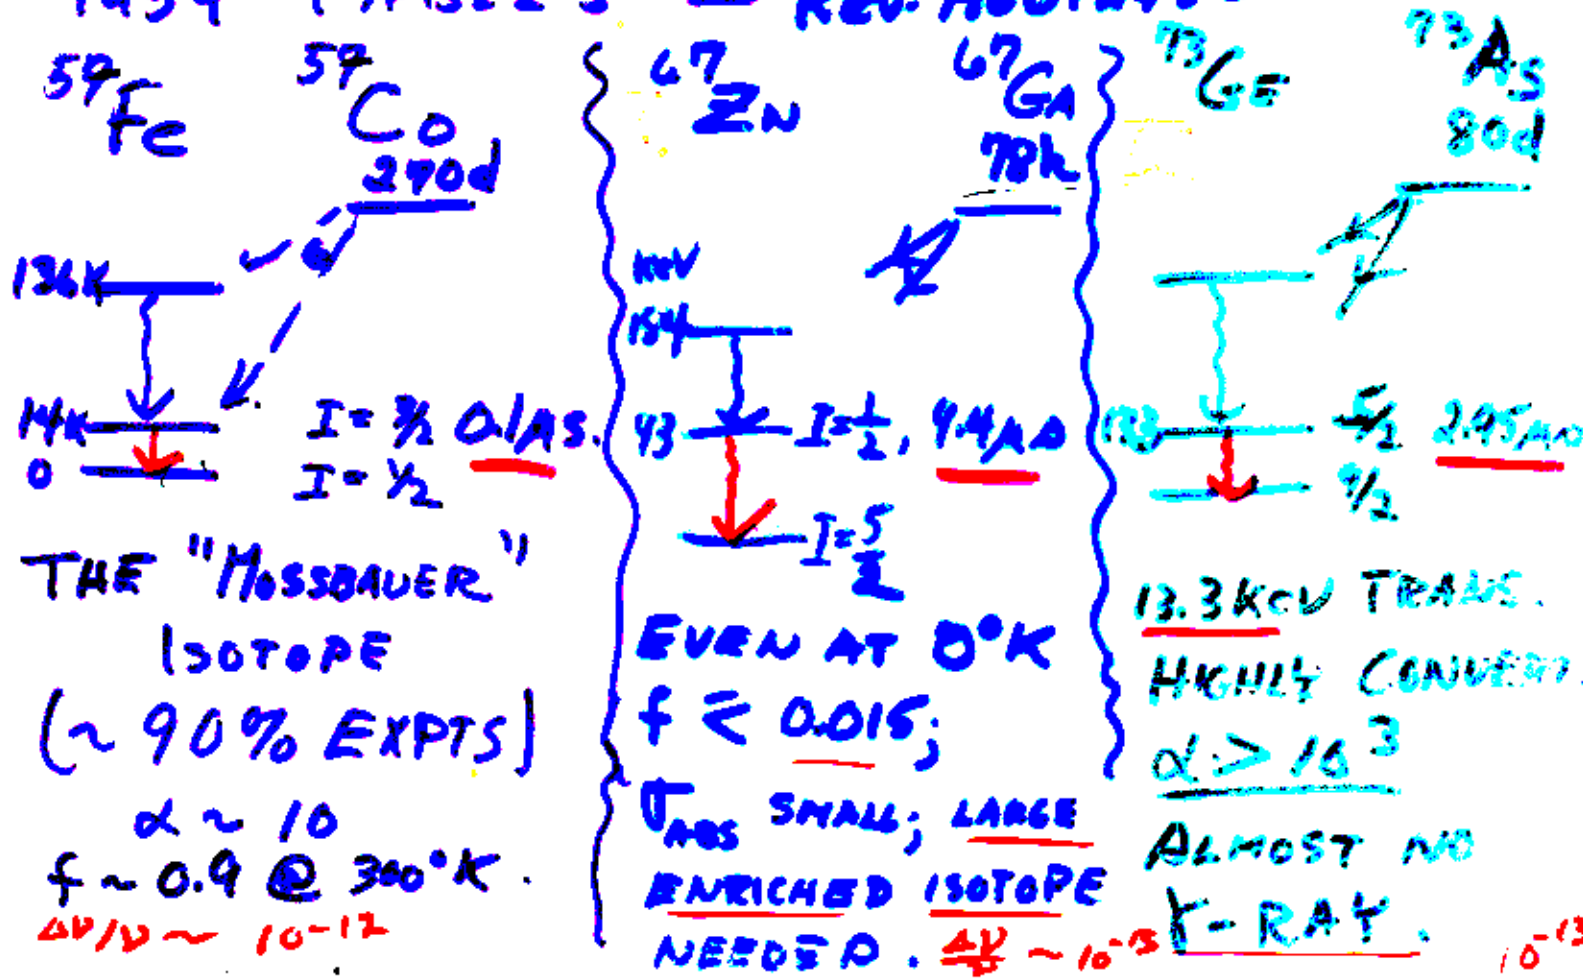 ⁵⁷Fe ⁵⁷Co
270d
136K
14K I = 3/2 0.1μs.
0 I = 1/2
THE "MOSSBAUER"
ISOTOPE
(~ 90% EXPTS)
α ~ 10
f ~ 0.9 @ 300°K.
Δν/ν ~ 10⁻¹²
⁶⁷ZN ⁶⁷GA
78h
KeV
184
93 I = 1/2, 9.4μs
I = 5/2
EVEN AT 0°K
f ≲ 0.015;
σABS SMALL; LARGE
ENRICHED ISOTOPE
NEEDED. Δν/ν ~ 10⁻¹³
⁷³GE ⁷³AS
80d
13.3 5/2 2.95μs
9/2
13.3KeV TRANS.
HIGHLY
α > 10³
ALMOST NO
γ-RAY. 10⁻¹³